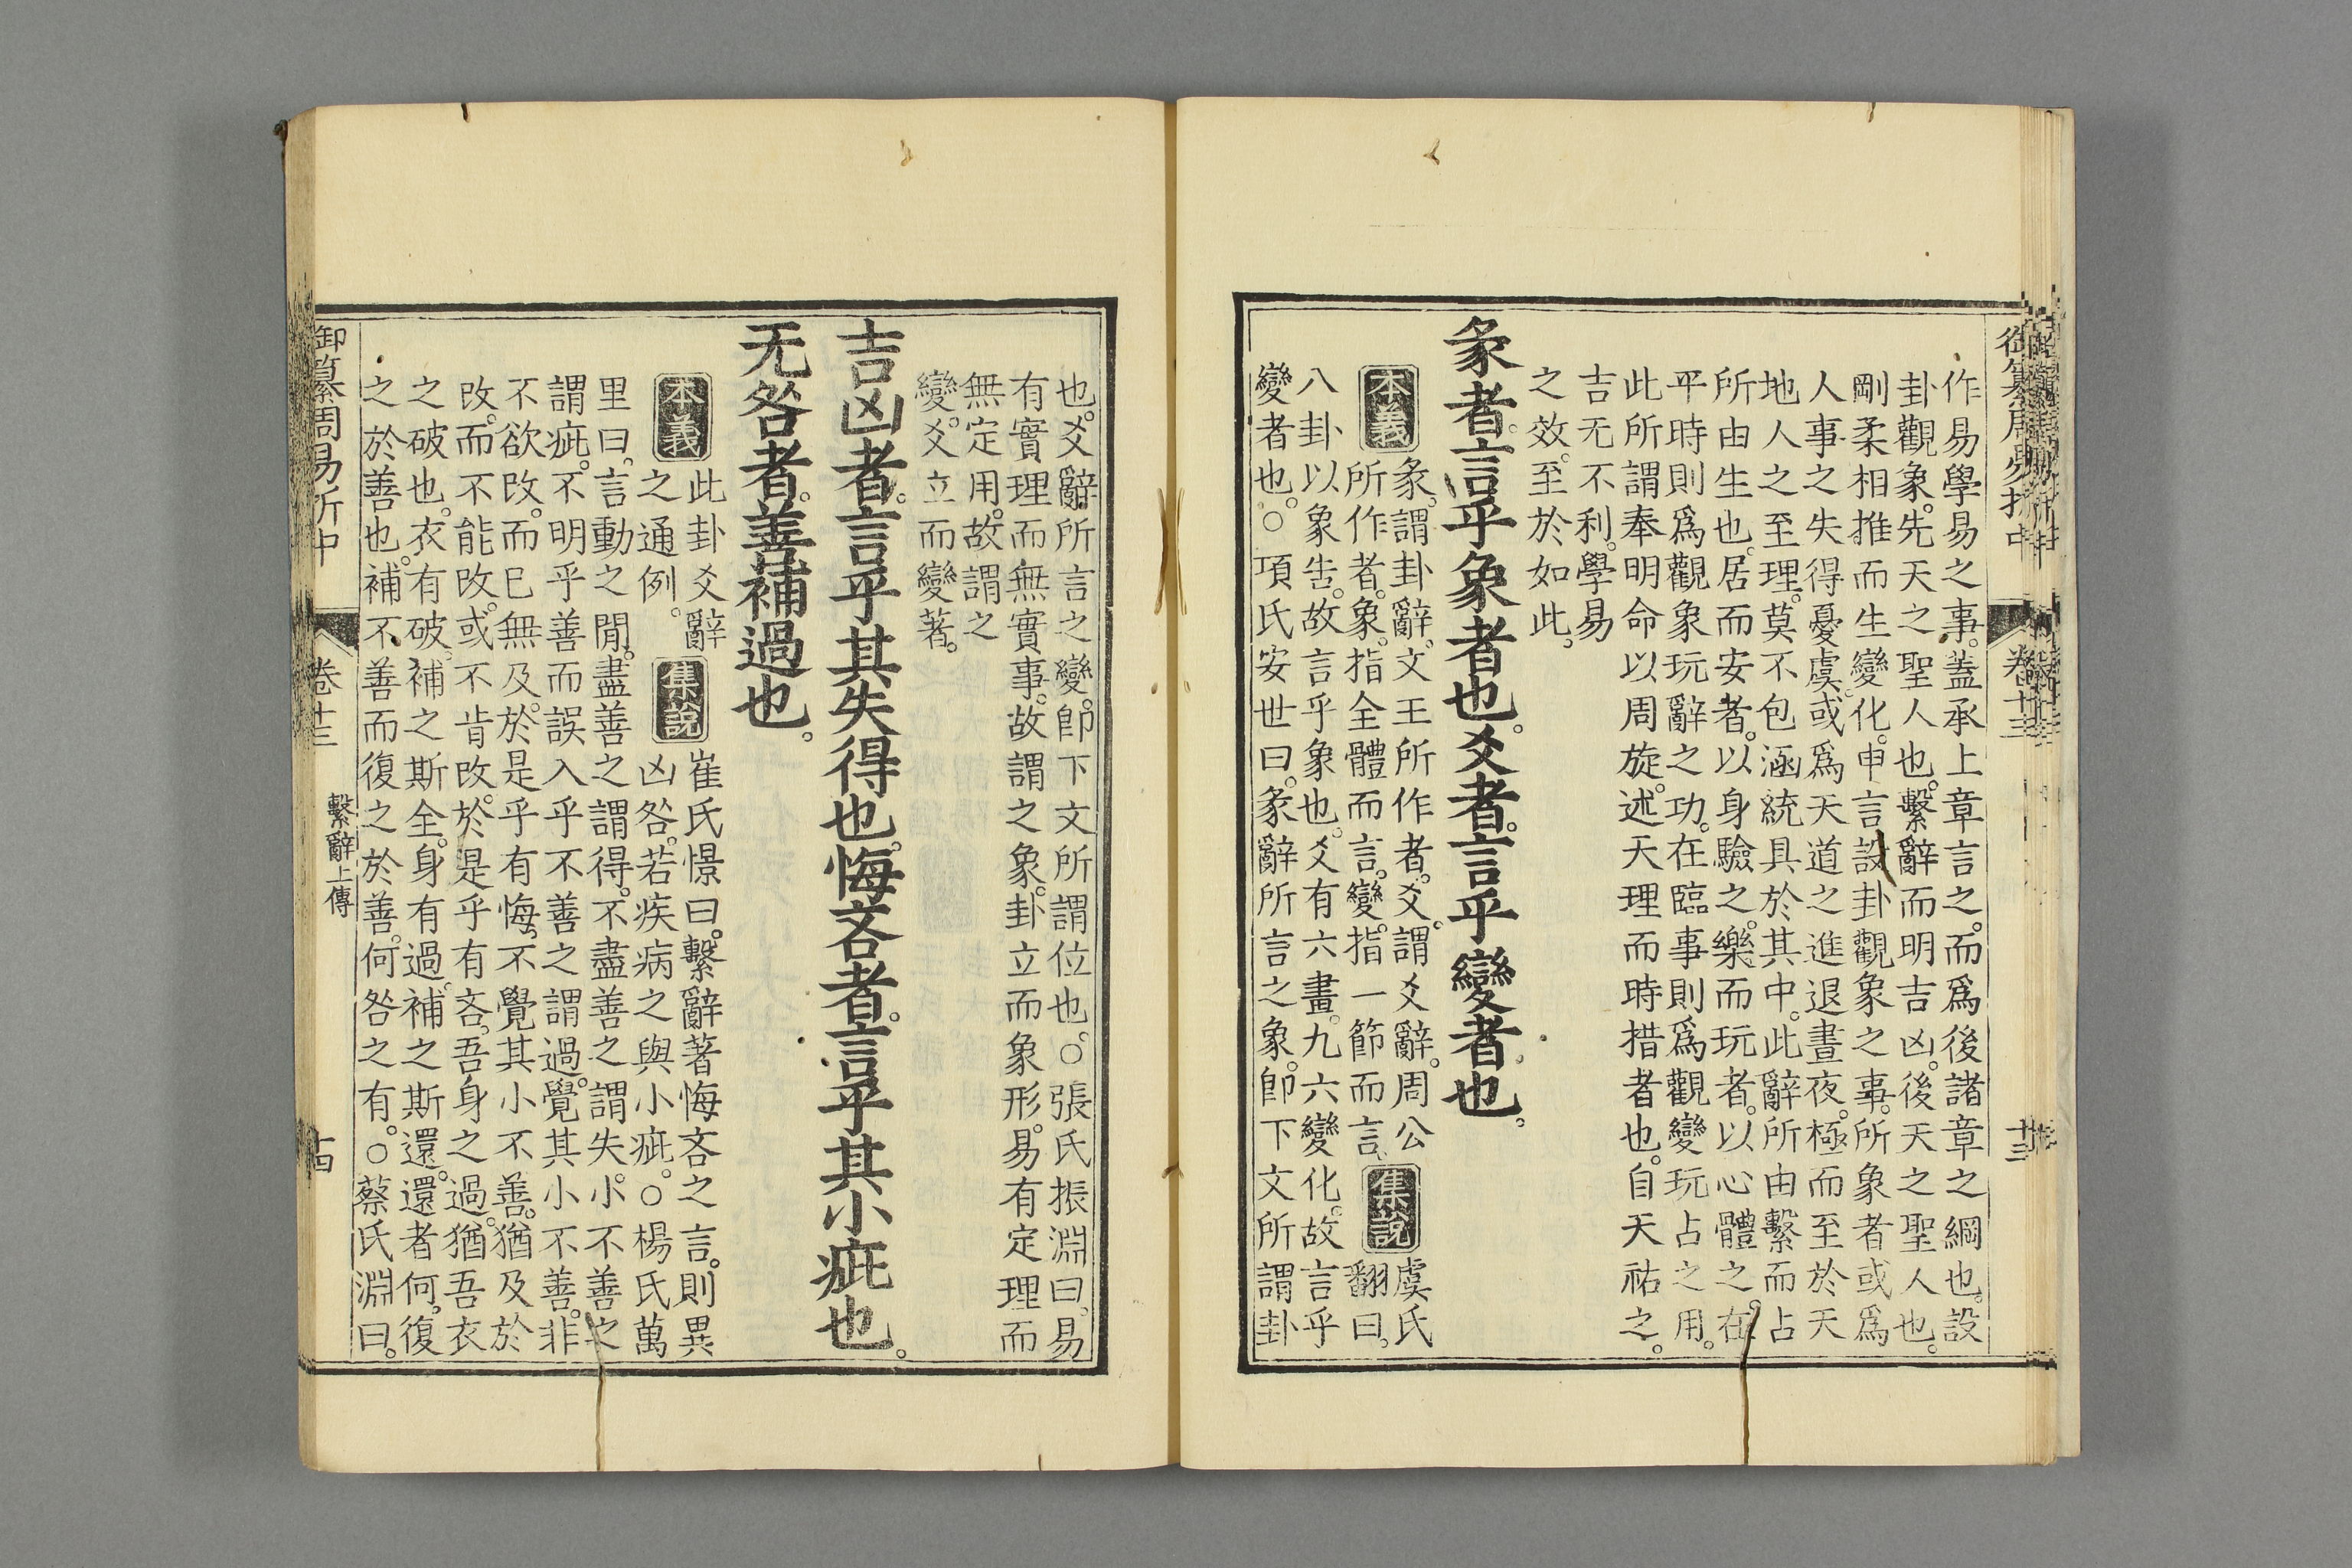 御纂周易折中
卷十三
十三
作易學易之事。蓋承上章言之。而爲後諸章之綱也。設
卦觀象。先天之聖人也。繫辭而明吉凶。後天之聖人也。
剛柔相推而生變化。申言設卦觀象之事。所象者或爲
人事之失得憂虞。或爲天道之進退晝夜。極而至於天
地人之至理。莫不包涵統具於其中。此辭所由繫而占
所由生也。居而安者。以身驗之。樂而玩者。以心體之。在
平時則爲觀象玩辭之功。在臨事則爲觀變玩占之用。
此所謂奉明命以周旋。述天理而時措者也。自天祐之。
吉无不利。學易
之效。至於如此。
彖者。言乎象者也。爻者。言乎變者也。
本義
彖。謂卦辭。文王所作者。爻。謂爻辭。周公
所作者。象。指全體而言。變。指一節而言。
集說
虞氏
翻曰。
八卦以象告。故言乎象也。爻有六畫。九六變化。故言乎
變者也。○項氏安世曰。彖辭所言之象。卽下文所謂卦
也。爻辭所言之變。卽下文所謂位也。○張氏振淵曰。易
有實理而無實事。故謂之象。卦立而象形。易有定理而
無定用。故謂之
變。爻立而變著。
吉凶者。言乎其失得也。悔吝者。言乎其小疵也。
无咎者。善補過也。
本義
此卦爻辭
之通例。
集說
崔氏憬曰。繫辭著悔吝之言。則異
凶咎。若疾病之與小疵。○楊氏萬
里曰。言動之閒。盡善之謂得。不盡善之謂失。小不善之
謂疵。不明乎善而誤入乎不善之謂過。覺其小不善。非
不欲改。而已無及。於是乎有悔。不覺其小不善。猶及於
改。而不能改。或不肯改。於是乎有吝。吾身之過。猶吾衣
之破也。衣有破。補之斯全。身有過。補之斯還。還者何。復
之於善也。補不善而復之於善。何咎之有。○蔡氏淵曰。
御纂周易折中
卷十三
繫辭上傳
十四